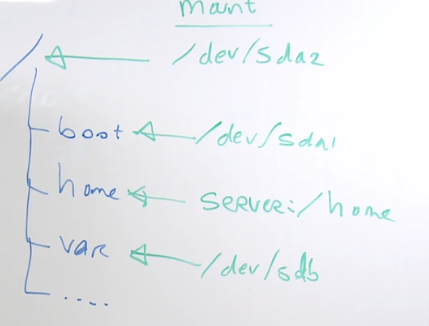 mant
/ /dev/sda2
boot /dev/sda1
home server:/home
var /dev/sdb
....